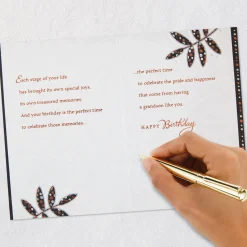 Each stage of your life
has brought its own special joys,
its own treasured memories.
And your birthday is the perfect time
to celebrate those memories...
...the perfect time
to celebrate the pride and happiness
that come from having
a grandson like you.
HAPPY Birthday